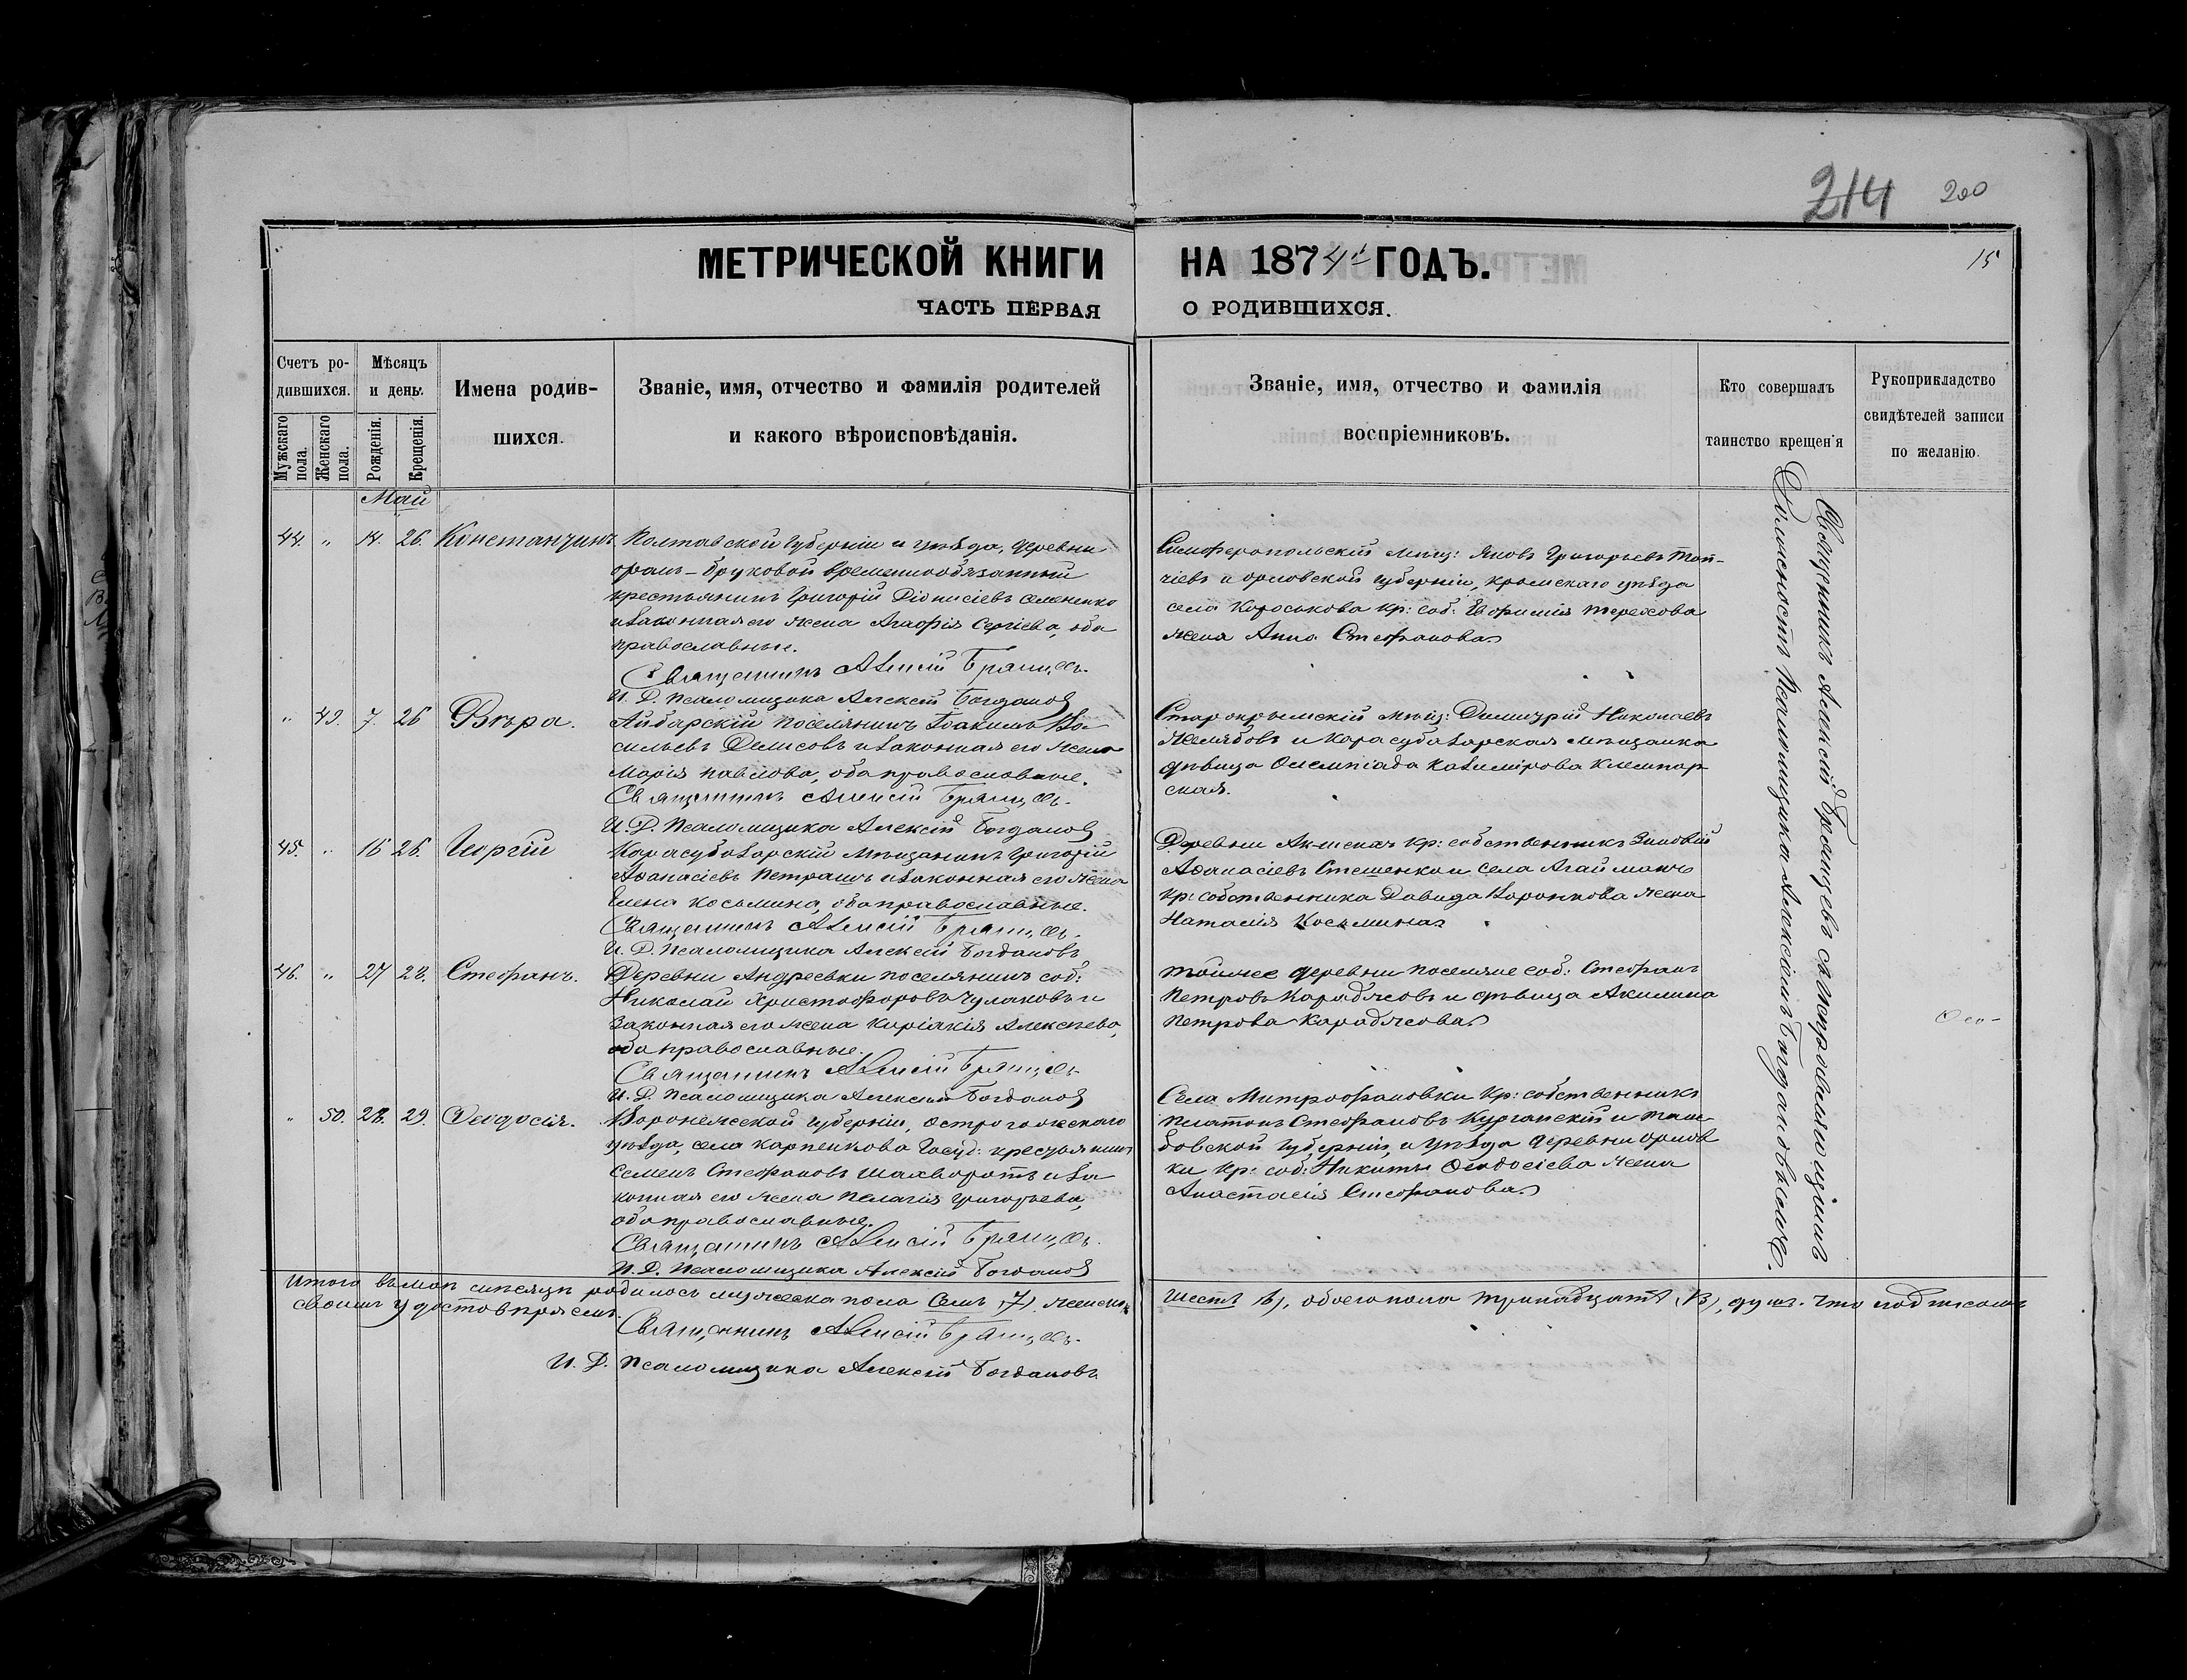 214 200
МЕТРИЧЕСКОЙ КНИГИ НА 1874й ГОДЪ.
15
ЧАСТЬ ПЕРВАЯ О РОДИВШИХСЯ.
Счетъ родившихся.
Мужскаго пола.
Женскаго пола.
Мѣсяцъ и день.
Рожденія.
Крещенія.
Имена родившихся.
Званіе, имя, отчество и фамилія родителей
и какого вѣроисповѣданія.
Званіе, имя, отчество и фамилія
воспріемниковъ.
Кто совершалъ
таинство крещенія
Рукоприкладство
свидѣтелей записи
по желанію.
Май
44. " 14. 26. Константинъ
Полтавской губерніи и уѣзда, деревни
временнообязанный
крестьянинъ Григорій Діонисіевъ Семененко
и законная его жена Агафія Сергіева, оба
православные.
Священникъ Алексій Брянцевъ.
И. Д. Псаломщика Алексій Богданов
Симферопольскій мѣщ: Яковъ Григорьевъ Топ-
чіевъ и орловской губерніи, кромскаго уѣзда
села Короськова кр: соб: Евфимія Терехова
жена Анна Стефанова.
" 49. 7. 26 Вѣра.
Айбарскій поселянинъ Іоакимъ Ва-
сильевъ Денисовъ и законная его жена
Марія Павлова, оба православные.
Священникъ Алексій Брянцевъ.
И. Д. Псаломщика Алексій Богданов
Старокрымскій мѣщ: Димитрій Николаевъ
Желябовъ и Карасубазарская мѣщанка
дѣвица Олемпіада Казимірова Клемпар-
ская.
45. " 15 26. Георгій
Карасубазарскій мѣщанинъ Григорій
Аѳанасіевъ Петрашъ и законная его жена
Елена Косьмина, оба православные.
Священникъ Алексій Брянцевъ.
И. Д. Псаломщика Алексій Богдановъ
Деревни Акшекаъ кр: собственникъ Зиновій
Аѳанасіевъ Стешенко и села Агайманъ
кр: собственника Давида Воронкова жена
Наталія Косьмина.
46. " 27 28. Стефанъ.
Деревни Андреевки поселянинъ соб:
Николай Христофоровъ Чулаковъ и
законная его жена Киріакія Алексѣева,
оба православные.
Священникъ Алексій Брянцевъ
И. Д. Псаломщика Алексій Богданов
Тойже деревни поселяне соб: Стефанъ
Петровъ Караджовъ и дѣвица Акилина
Петрова Караджова.
" 50. 28. 29. Ѳеодосія.
Воронежской губерніи, Острогожскаго
уѣзда, села Карпенкова Госуд: крестьянинъ
Семенъ Стефановъ Шалворотъ и за
конная его жена Пелагія Григорьева,
оба православные.
Священникъ Алексій Брянцевъ.
И. Д. Псаломщика Алексій Богданов
Села Митрофановки кр: собственникъ
Платонъ Стефановъ Курганскій и Там-
бовской губерніи, и уѣзда деревни орлов
ки кр: соб: Никиты Ѳеодосіева жена
Анастасія Стефанова.
Священникъ Алексій Брянцевъ съ исправляющимъ
Должность Псаломщика Алексіемъ Богдановымъ.
Итого въ маѣ мѣсяцѣ родилось мужеска пола Семь (7), женска, Шесть (6), обоего пола тринадцать (13), душъ. Что подписомъ
своимъ удостовѣряемъ.
Священникъ Алексій Брянцевъ.
И. Д. Псаломщика Алексій Богдановъ.